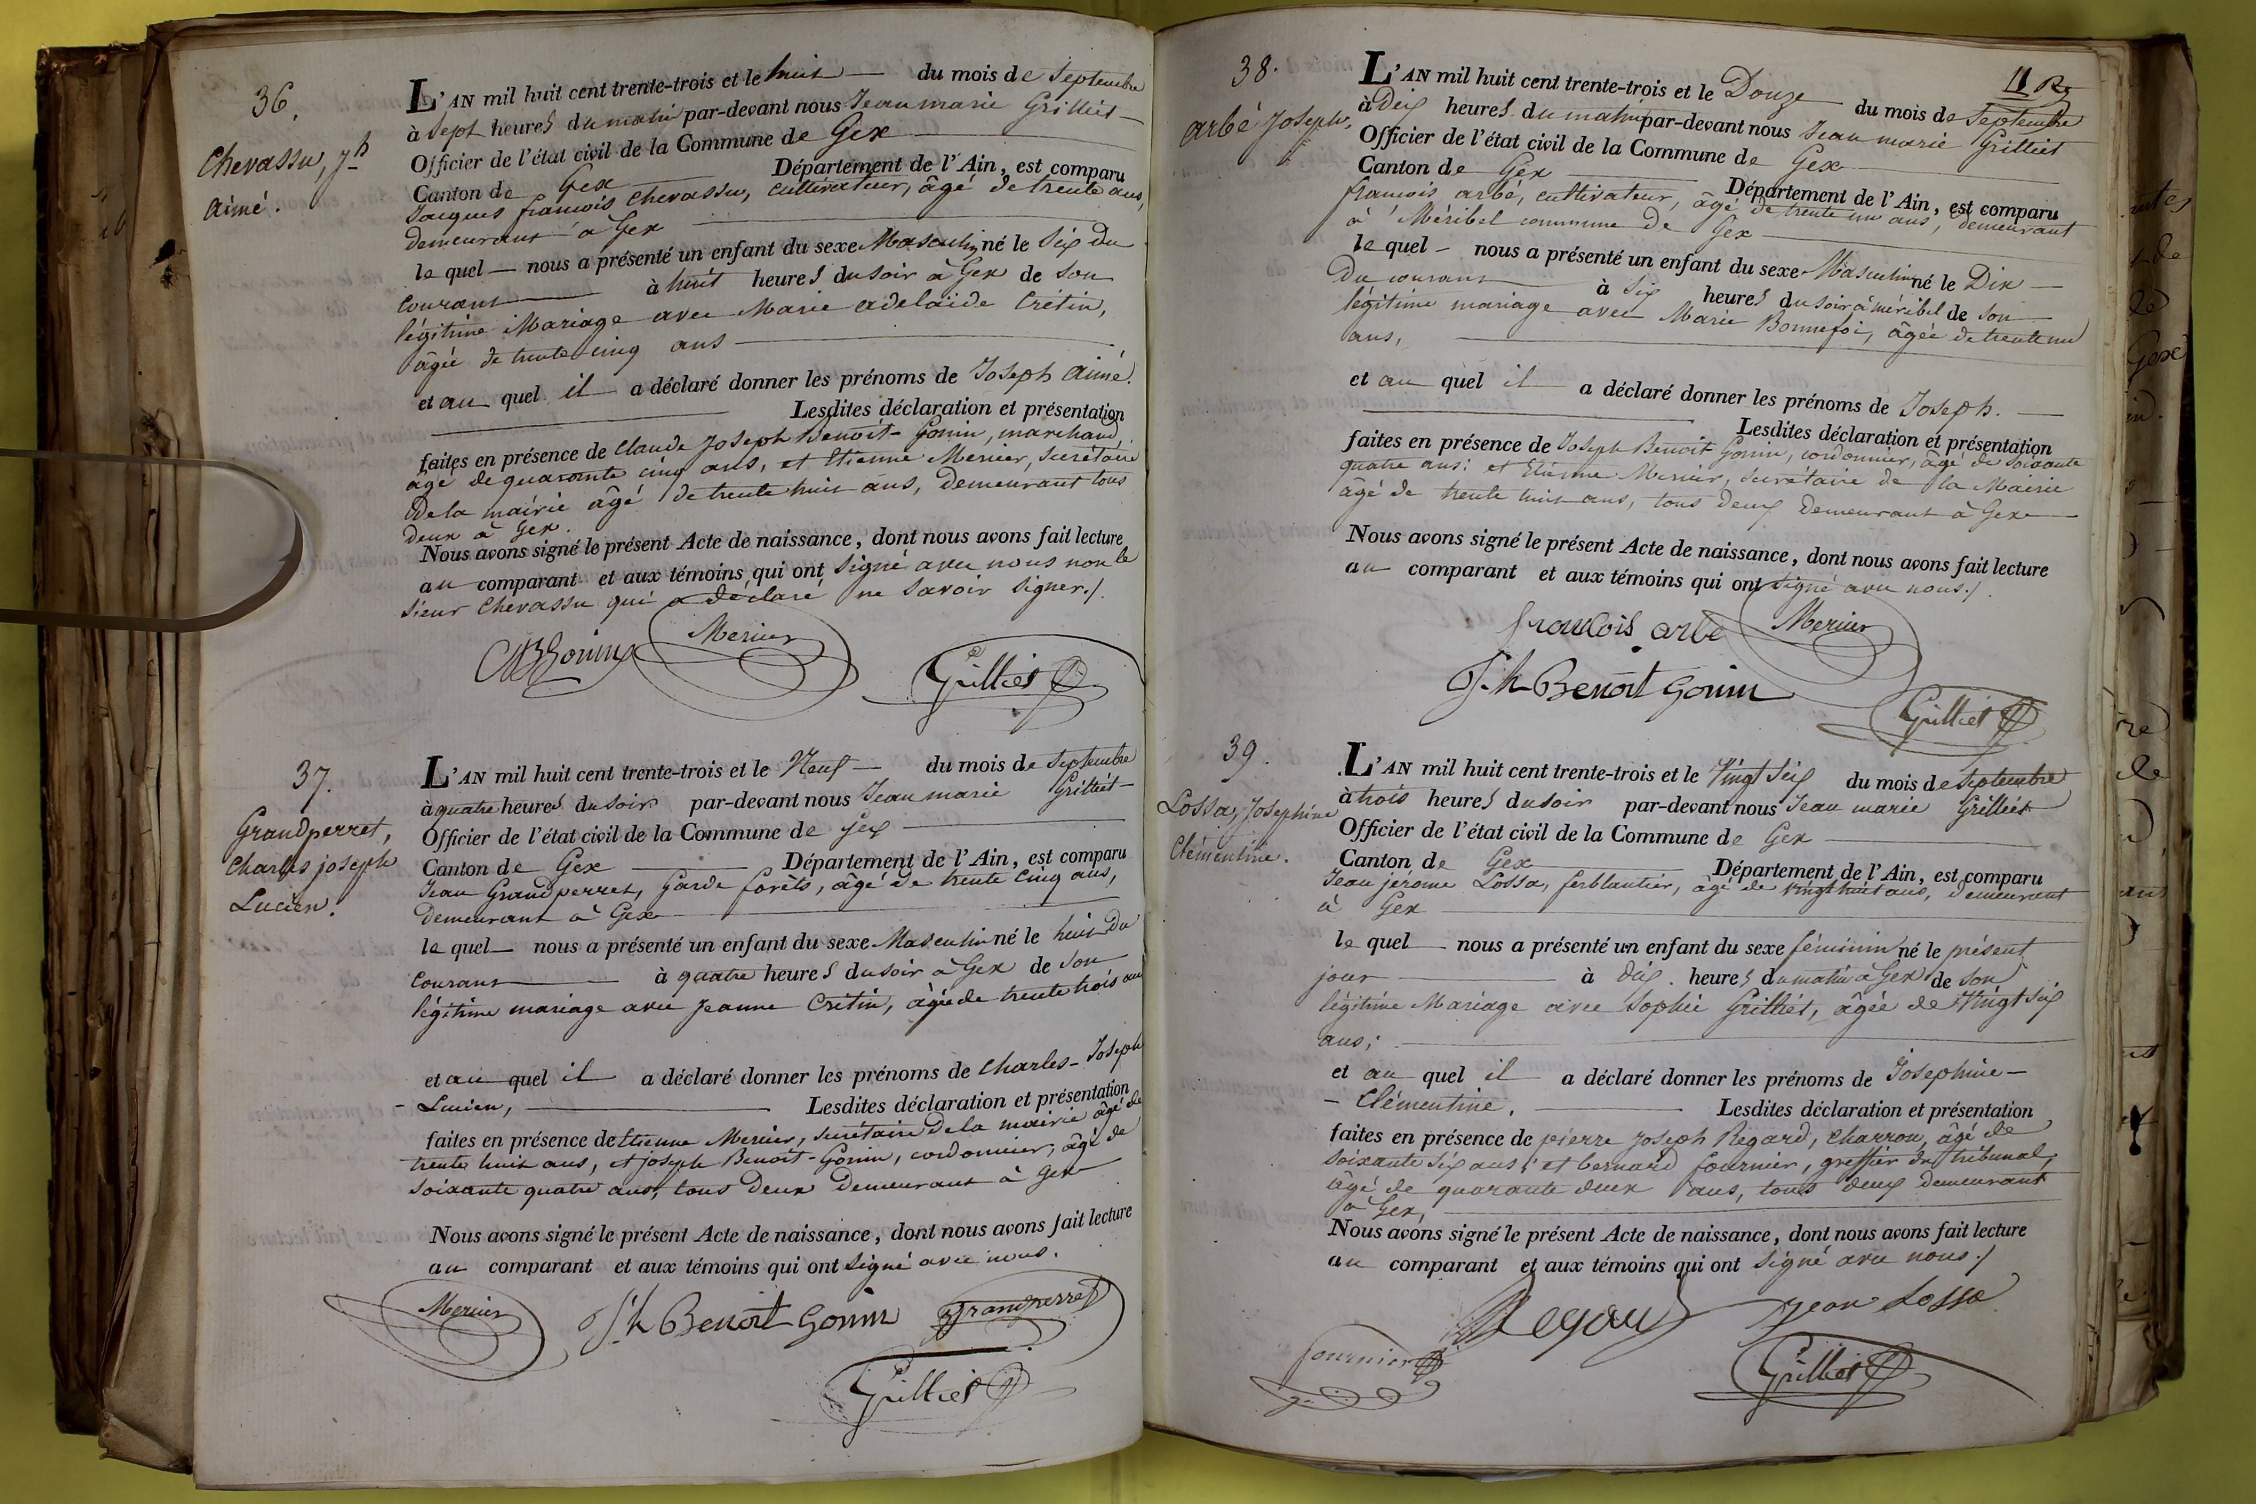 36.
Chevassu, Jh
aimé.
L'AN mil huit cent trente-trois et le huit du mois de Septembre
à Sept heures du matin par-devant nous Jean marie Grilliet
Officier de l'état civil de la Commune de Gex
Canton de Gex Département de l'Ain, est comparu
Jacques francois Chevassu, cultivateur, âgé de trente ans,
demeurant à Gex
le quel nous a présenté un enfant du sexe Masculin né le Six du
courant à huit heures du soir à Gex de son
légitime Mariage avec Marie adelaïde Crétin,
âgée de trente cinq ans
et au quel il a déclaré donner les prénoms de Joseph aimé.
Lesdites déclaration et présentation
faites en présence de Claude Joseph Benoit-Gonin, marchand,
âgé de quarante cinq ans, et Etienne Mercier, Secrétaire
de la mairie âgé de trente huit ans, demeurant tous
deux à Gex.
Nous avons signé le présent Acte de naissance, dont nous avons fait lecture
au comparant et aux témoins qui ont signé avec nous non le
sieur Chevassu qui a déclaré ne savoir signer./.
Mercier
Grilliet
37.
Grandperret,
Charles joseph
Lucien.
L'AN mil huit cent trente-trois et le Neuf du mois de Septembre
à quatre heures du soir par-devant nous Jean marie Grilliet
Officier de l'état civil de la Commune de Gex
Canton de Gex Département de l'Ain, est comparu
Jean Grandperret, garde forêts, âgé de trente cinq ans,
demeurant à Gex
le quel nous a présenté un enfant du sexe Masculin né le huit du
courant à quatre heures du soir à Gex de son
légitime mariage avec Jeanne Critin, âgée de trente trois ans
et au quel il a déclaré donner les prénoms de Charles-Joseph
- Lucien, Lesdites déclaration et présentation
faites en présence de Etienne Mercier, secrétaire de la mairie âgé de
trente huit ans, et joseph Benoit-Gonin, cordonnier, âgé de
soixante quatre ans, tous deux demeurant à Gex
Nous avons signé le présent Acte de naissance, dont nous avons fait lecture
au comparant et aux témoins qui ont signé avec nous.
Mercier Jh Benoit Gonin Grandperret
Grilliet
11
38.
arbé Joseph,
L'AN mil huit cent trente-trois et le Douze du mois de Septembre
à Dix heures du matin par-devant nous Jean marie Grilliet
Officier de l'état civil de la Commune de Gex
Canton de Gex Département de l'Ain, est comparu
francois arbé, cultivateur, âgé de trente un ans, demeurant
à Méribel commune de Gex
le quel nous a présenté un enfant du sexe Masculin né le Dix
du courant à Six heures du soir à méribel de son
légitime mariage avec Marie Bonnefoi, âgée de trente un
ans,
et au quel il a déclaré donner les prénoms de Joseph.
Lesdites déclaration et présentation
faites en présence de Joseph Benoit Gonin, cordonnier, âgé de soixante
quatre ans; et Etienne Mercier, secrétaire de la Mairie
âgé de trente huit ans, tous deux demeurant à Gex
Nous avons signé le présent Acte de naissance, dont nous avons fait lecture
au comparant et aux témoins qui ont signé avec nous./.
francois arbé Mercier
Jh Benoit Gonin
Grilliet
39.
Lossa, Josephine
Clémentine.
L'AN mil huit cent trente-trois et le Vingt Six du mois de Septembre
à trois heures du soir par-devant nous Jean marie Grilliet
Officier de l'état civil de la Commune de Gex
Canton de Gex Département de l'Ain, est comparu
Jean jérome Lossa, ferblantier, âgé de vingt huit ans, demeurant
à Gex
le quel nous a présenté un enfant du sexe féminin né le présent
jour à dix heures du matin à Gex de son
légitime Mariage avec Sophie Grilliet, âgée de Vingt Six
ans;
et au quel il a déclaré donner les prénoms de Josephine-
- Clémentine. Lesdites déclaration et présentation
faites en présence de pierre Joseph Regard, charron, âgé de
soixante six ans; et bernard fournier, greffier du tribunal,
âgé de quarante deux ans, tous deux demeurant
à Gex,
Nous avons signé le présent Acte de naissance, dont nous avons fait lecture
au comparant et aux témoins qui ont signé avec nous./
Regard Jean Lossa
fournier
Grilliet